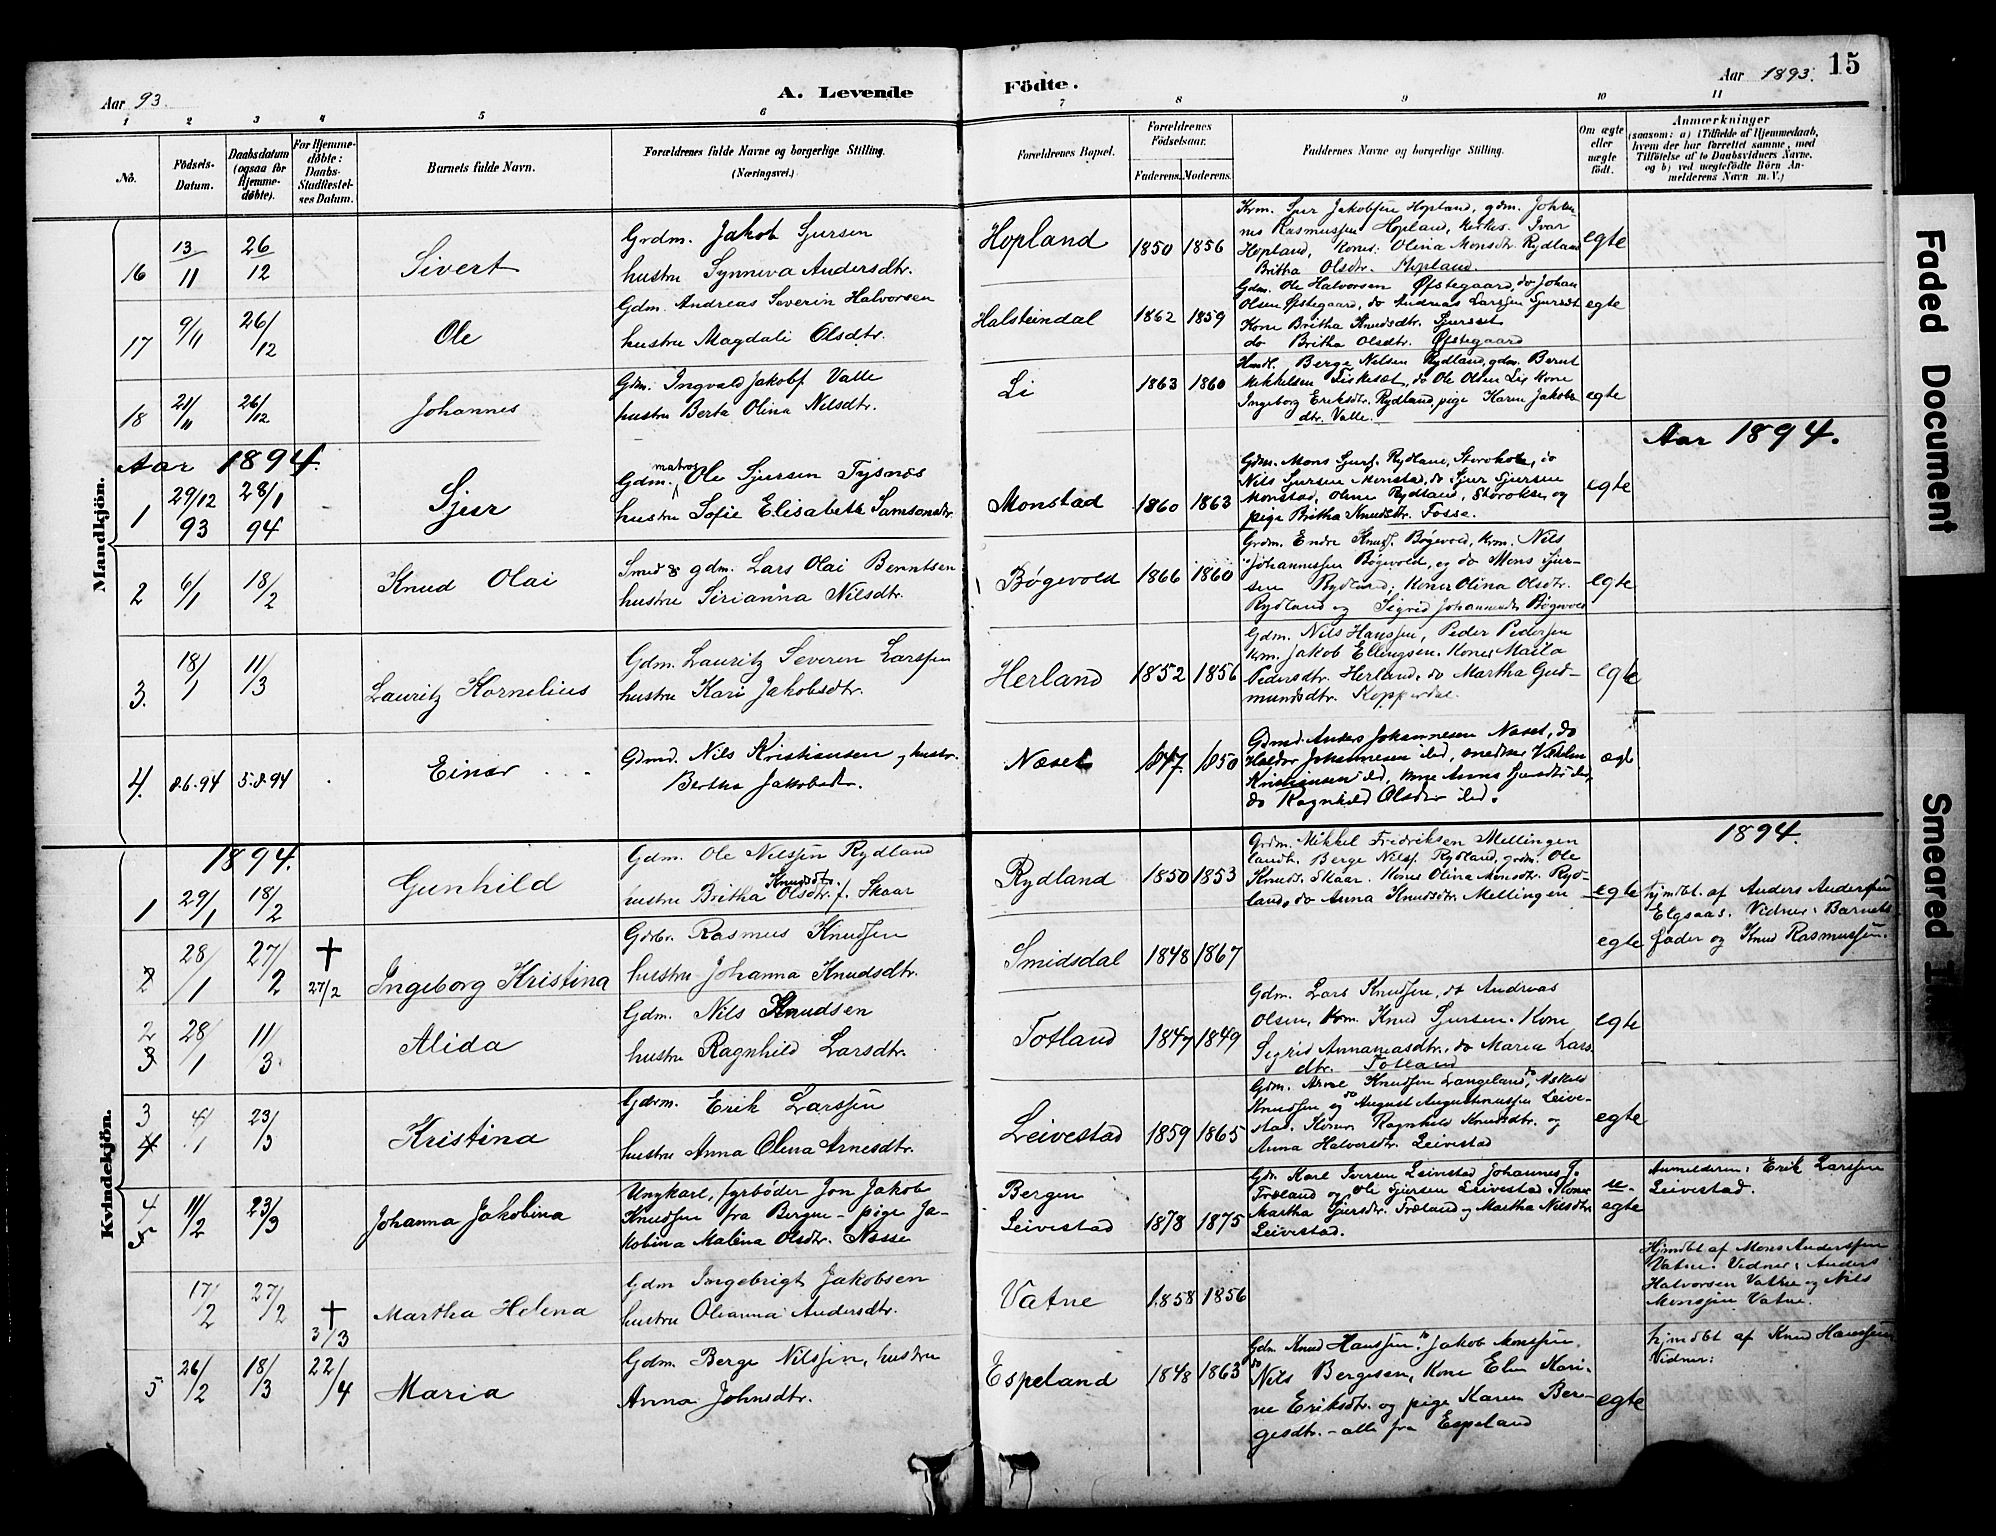 15
Aar 93.
A. Levende
Födte.
Aar 1893.
1 2 3 4 5 6 7 8 9 10 11
No.
Födsels-
Datum.
Daabsdatum
(ogsaa for
Hjemme-
døbte).
For Hjemme-
døbte:
Daabs-
Stadfæstel-
ses Datum.
Barnets fulde Navn.
Forældrenes fulde Navne og borgerlige Stilling.
(Næringsvei.)
Forældrenes Bopæl.
Forældrenes
Födselsaar.
Faderens. Moderens.
Faddernes Navne og borgerlige Stilling.
Om ægte
eller
uægte
født.
Anmærkninger
(saasom: a) i Tilfælde af Hjemmedaab,
hvem der har forrettet samme, med
Tilføielse af to Daabsvidners Navne,
og b) ved uægtefödte Börn An-
melderens Navn m. V.)
Mandkjön.
16 13/11 26/12 Sivert
Grdm. Jakob Sjursen
hustru Synneva Andersdtr.
Hopland 1850 1856
Krm. Sjur Jakobsen Hopland, gdm. Johan-
nes Rasmussen Hopland, Kirkes. Ivar
Hopland, Koner: Olina Monsdtr. Rydland
Britha Olsdtr. Hopland.
egte
17 9/11 26/12 Ole
Gdm. Andreas Severin Halvorsen
hustru Magdali Olsdtr.
Halsteindal 1862 1859
Gdm. Ole Halvorsen Øfstegaard, do Johan
Olsen Øfstegaard, do Andreas Larssen Sjurset
Kone Britha Knudsdtr. Sjurset
do Britha Olsdtr. Øfstegaard
egte
18 21/11 26/12 Johannes
Gdm. Ingvald Jakobs. Valle
hustru Berta Olina Nilsdtr.
Li 1863 1860
Hmd. Berge Nilsen Rydland, gdm. Bernt
Mikkelsen Fiskeset, do Ole Olsen Li, Kone
Ingeborg Eriksdtr. Rydland, pige Karen Jakobs-
dtr. Valle.
egte
Aar 1894.
Aar 1894.
1 29/12 93 28/1 94 Sjur
matros
Gdm. Ole Sjursen Tysnæs
hustru Sofie Elisabeth Samsonsdtr
Monstad 1860 1863
Gdm. Mons Sjurs. Rydland, do
Nils Sjursen Monstad, do Sjur Sjursen
Monstad, Rydland, og
pige Britha Knudsdtr. Fosse.
egte
2 6/1 18/2 Knud Olai
Smed & gdm. Lars Olai Berntsen
hustru Sirianna Nilsdtr.
Bøgevold 1866 1860
Grdm. Endre Knuds. Bøgevold, Krm. Nils
Johannessen Bøgevold, og do Mons Sjur-
sen Rydland, Koner Olina Olsdtr.
Rydland og Sigrid Johannesdtr Bøgevold
egte
3. 18/1 11/3 Lauritz Kornelius
Gdm. Lauritz Severin Larssen
hustru Kari Jakobsdtr.
Herland 1852 1856
Gdm. Nils Hanssen, Peder Pedersen
Krm. Jakob Ellingsen. Koner Maria
Pedersdtr. Herland, do Martha Gud-
mundsdtr. Kopperdal.
egte
4. 8.6.94 5.8.94 Einar
Gdmd. Nils Kristiansen og hustr.
Bertha Jakobsdtr.
Næset 1847. 1850
Gdmd. Anders Johannesen Næset, do
Haldor Johannesen ibd,
Kristiansen ibd, kone Anna Sjursdtr ibd,
do Ragnhild Olsdtr ibd.
ægt
Kvindekjön.
1894.
1894.
1 29/1 18/2 Gunhild
Gdm. Ole Nilssen Rydland
Knudsdtr.
hustru Britha Olsdtr. f. Skaar
Rydland 1850 1853
Grdm. Mikkel Fredriksen Mellingen
landh. Berge Nils. Rydland, grdm. Ole
Knuds. Skaar. Kone Olina Monsdtr. Ryd-
land, do Anna Knudsdtr. Mellingen
egte
2 28/1 27/2 † 27/2 Ingeborg Kristina
Gdbr. Rasmus Knudsen
hustru Johanna Knudsdtr.
Smidsdal 1848 1867
egte
hjmdbt. af Anders Anderssen
Elgsaas. Vidner: Barnets
fader og Knud Rasmussen.
2 3 28/1 11/3. Alida
Gdm. Nils Knudsen
hustru Ragnhild Larsdtr.
Totland 1847 1849
Gdm. Lars Knudsen, do Andreas
Olsen, Krm. Knud Sjursen. Kone
Sigrid Annaniasdtr., do Maria Lars
dtr. Totland
egte
3 4 4/1 23/3 Kristina
Gdrm. Erik Larssen
hustru Anna Olina Arnesdtr.
Leivestad 1859 1865
Gdm. Arne Knudsen Langeland, do Askild
Knudsen og do August Augustinussen Leive-
stad. Koner Ragnhild Knudsdtr. og
Anna Halvorsdtr. Leivestad
egte
4 5 11/2 23/3 Johanna Jakobina
Ungkarl, fyrbøder Jon Jakob
Knudsen fra Bergen - pige Ja-
kobina Malena Olsdtr. Næsse
Bergen
Leivestad 1878 1875
Gdr. Karl Iversen Leivestad Johannes J.
Træland og Ole Sjursen Leivestad. Koner
Martha Sjursdtr. Træland og Martha Nilsdtr
Leivestad.
u-
ægte
Anmelderen: Erik Larssen
Leivestad.
17/2 27/2 † 3/3 Martha Helena
Gdm Ingebrigt Jakobsen
hustru Olianna Andersdtr.
Vatne 1858 1856
Hjmdbt af Mons Anderssen
Vatne. Vidner: Anders
Halvorsen Vatne og Nils
Monssen Vatne.
5 26/2 18/3 22/4 Maria
Gdm. Berge Nilssen, hustru
Anna Johnsdtr.
Espeland 1848 1863
Gdm. Knud Hanssen, do Jakob Monssen
do Nils Bergesen, Kone Elen Kari-
ne Eriksdtr. og pige Karen Ber-
gesdtr. - alle fra Espeland
egte
hjmdbt af Knud Hanssen
Vidner:
Faded Document
Smeared